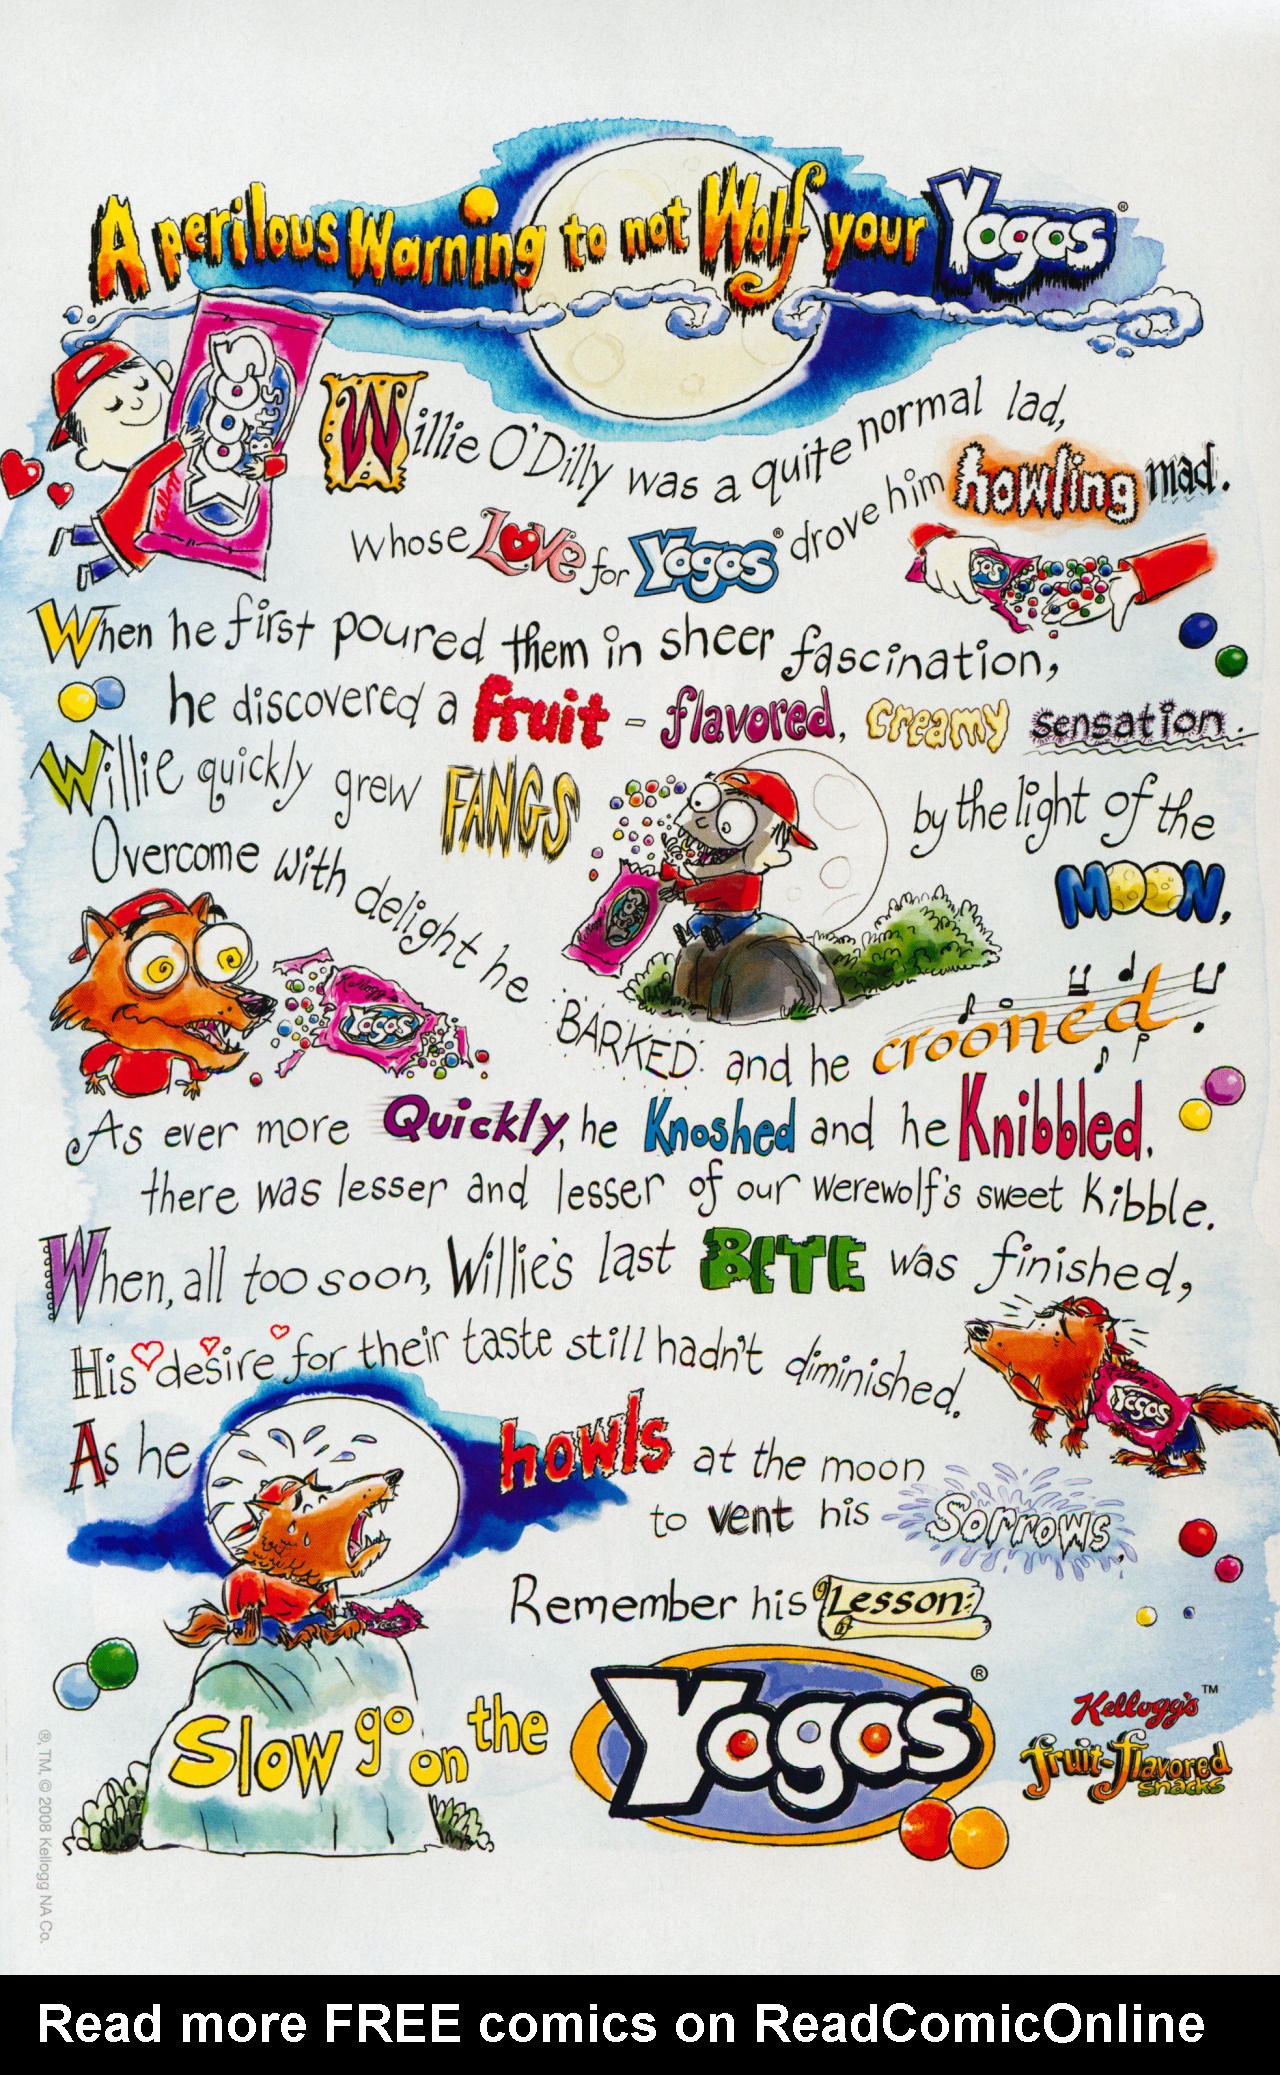 A perilous Warning to not Wolf your Yogos®
Yogos Bits
Willie O'Dilly was a quite normal lad,
whose Love for Yogos® drove him howling mad.
When he first poured them in sheer fascination,
he discovered a fruit-flavored, creamy sensation.
Willie quickly grew FANGS by the light of the MOON,
Overcome with delight he BARKED and he crooned.
Kellogg's
Yogos
As ever more Quickly, he Knoshed and he Knibbled,
there was lesser and lesser of our werewolf's sweet Kibble.
When, all too soon, Willie's last BITE was finished,
His desire for their taste still hadn't diminished.
Yogos
As he howls at the moon
to vent his Sorrows,
Remember his Lesson:
Slow go on the Yogos®
Kellogg's™
fruit-flavored
snacks
®, TM, © 2008 Kellogg NA Co.
Read more FREE comics on ReadComicOnline